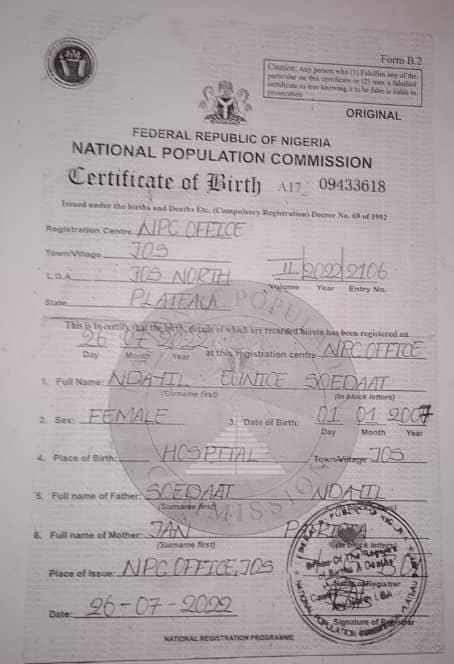 Form B.2
Caution: Any person who (1) Falsifies any of the
particular on this certificate or (2) uses a falsified
certificate as true knowing it to be false is liable to
prosecution
ORIGINAL
FEDERAL REPUBLIC OF NIGERIA
NATIONAL POPULATION COMMISSION
Certificate of Birth A17 09433618
Issued under the births and Deaths Etc. (Compulsory Registration) Decree No. 69 of 1992
Registration Centre NPC OFFICE
Town/Village JOS
L.G.A. JOS NORTH II 2022 2106
Volume Year Entry No.
State PLATEAU
This is to certify that the birth, details of which are recorded herein has been registered on
26 07 2022 at this registration centre NPC OFFICE
Day Month Year
1. Full Name: NDAHIL EUNICE SOEDAAT
(Surname first) (In block letters)
2. Sex: FEMALE 3. Date of Birth: 01 01 2007
Day Month Year
4. Place of Birth: HOSPITAL Town/Village JOS
5. Full name of Father: SOEDAAT NDAHIL
(Surname first)
6. Full name of Mother: JAN
(Surname first) (In block letters)
Place of Issue: NPC OFFICE, JOS
Name of Registrar
Date: 26-07-2022
Signature of Registrar
NATIONAL REGISTRATION PROGRAMME